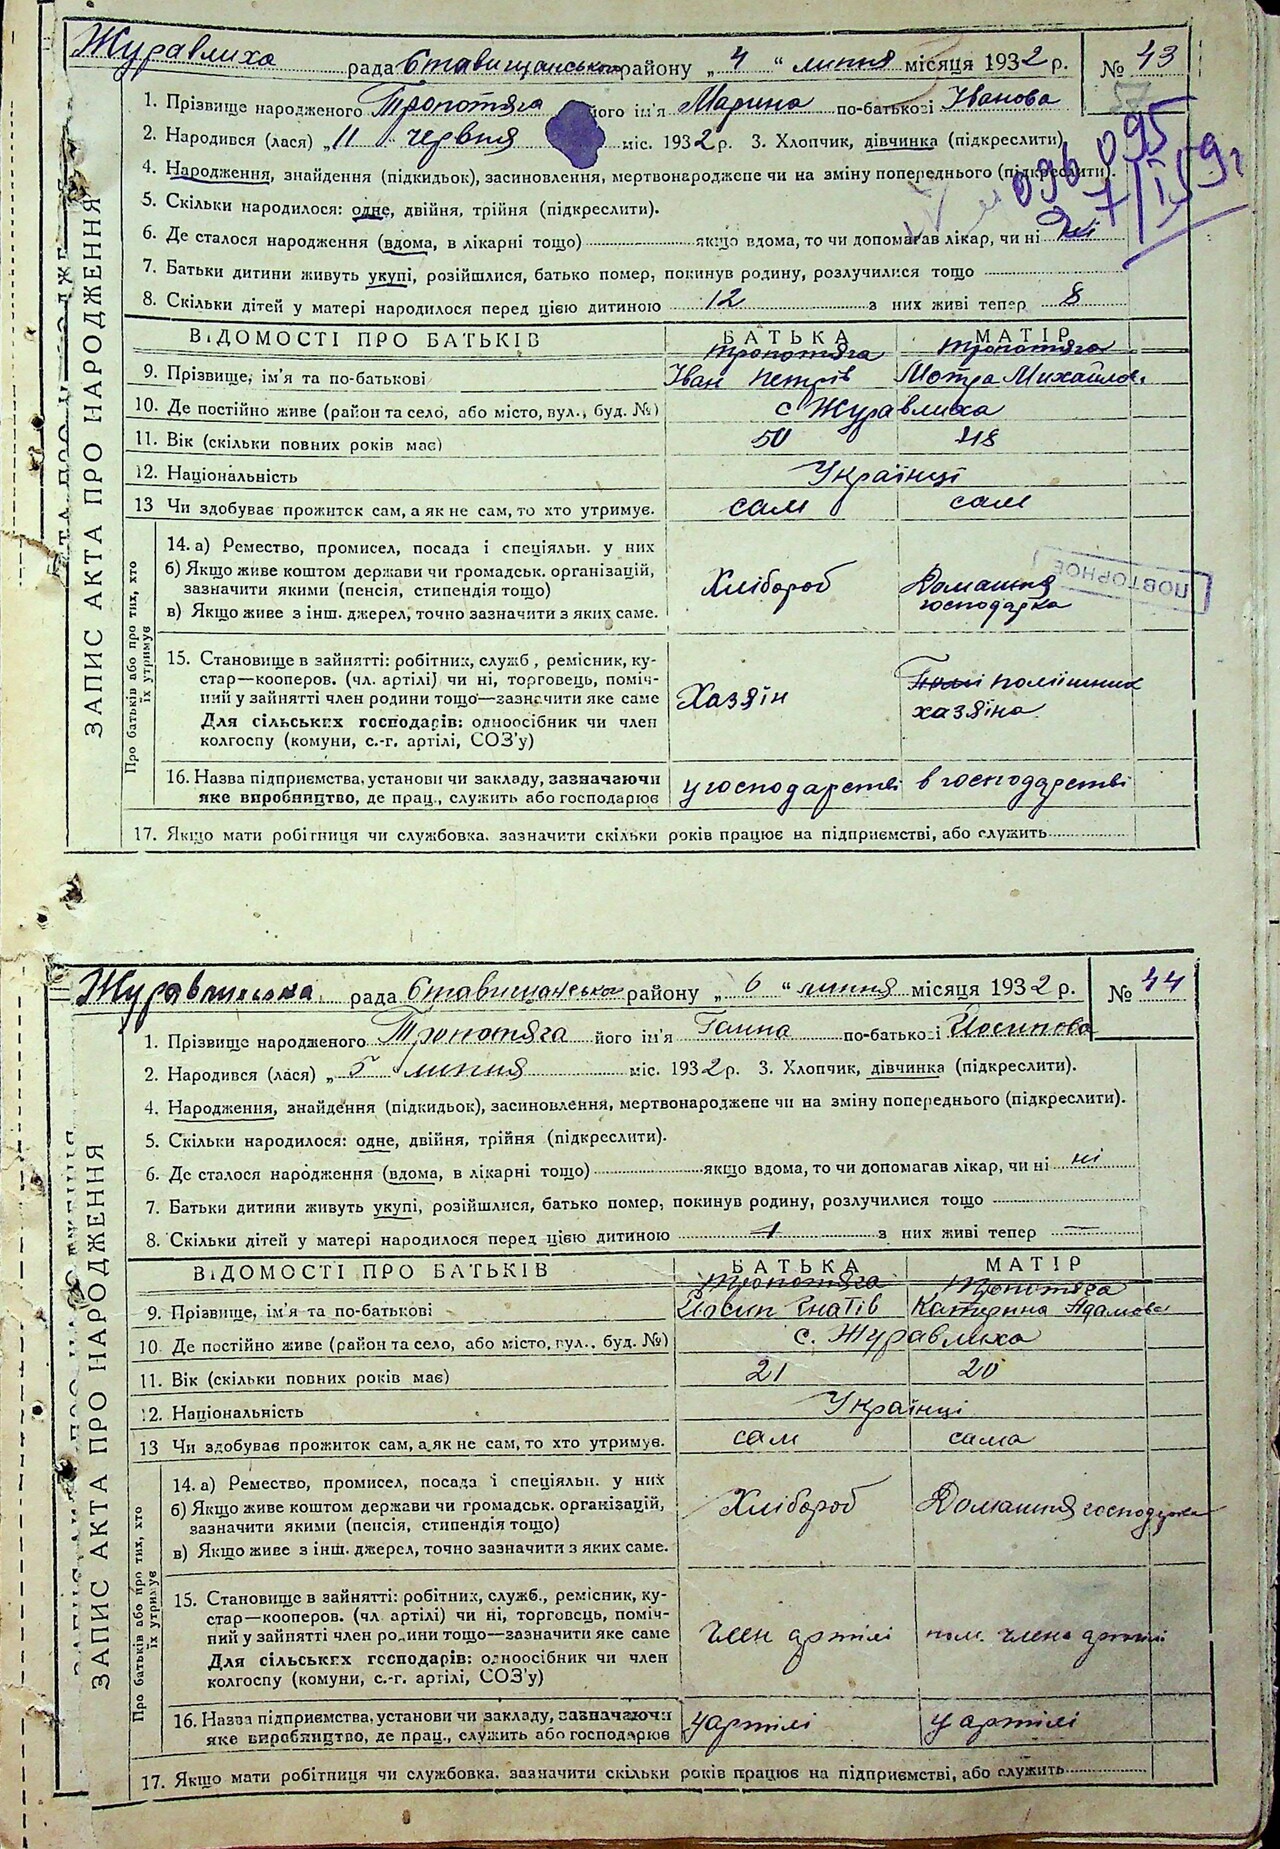 Журавлиха рада Ставищанського району „ 4 “ липня місяця 1932 р. № 43
1. Прізвище народженого Тропотяга його ім'я Марина по-батькові Іванова
2. Народився (лася) „ 11 червня міс. 1932 р. 3. Хлопчик, дівчинка (підкреслити)
4. Народження, знайдення (підкидьок), засиновлення, мертвонароджене чи на зміну попереднього (підкреслити).
5. Скільки народилося: одне, двійня, трійня (підкреслити).
6. Де сталося народження (вдома, в лікарні тощо) якщо вдома, то чи допомагав лікар, чи ні ні
7. Батьки дитини живуть укупі, розійшлися, батько помер, покинув родину, розлучилися тощо
8. Скільки дітей у матері народилося перед цією дитиною 12 з них живі тепер 8
096 095
7/IV 59 г
ЗАПИС АКТА ПРО НАРОДЖЕННЯ
ВІДОМОСТІ ПРО БАТЬКІВ БАТЬКА МАТІР
Тропотяга Тропотяга
9. Прізвище, ім'я та по-батькові Іван Петрів Мотря Михайлов.
10. Де постійно живе (район та село, або місто, вул., буд. №) с Журавлиха
11. Вік (скільки повних років має) 50 48
12. Національність Українці
13 Чи здобуває прожиток сам, а як не сам, то хто утримує. сам сам
Про батьків або про тих, хто їх утримує
14. а) Ремество, промисел, посада і спеціяльн. у них
б) Якщо живе коштом держави чи громадськ. організацій, Хлібороб Домашня
зазначити якими (пенсія, стипендія тощо) господарка
в) Якщо живе з інш. джерел, точно зазначити з яких саме.
ПОВТОРНОЕ
15. Становище в зайнятті: робітник, служб, ремісник, ку-
стар—кооперов. (чл. артілі) чи ні, торговець, поміч-
ний у зайнятті член родини тощо—зазначити яке саме Хазяїн помішник
Для сільських господарів: одноосібник чи член хазяїна
колгоспу (комуни, с.-г. артілі, СОЗ'у)
16. Назва підприємства, установи чи закладу, зазначаючи
яке виробництво, де прац., служить або господарює у господарстві в господарстві
17. Якщо мати робітниця чи службовка. зазначити скільки років працює на підприємстві, або служить
Журавлиська рада Ставищанська району „ 6 “ липня місяця 1932 р. № 44
1. Прізвище народженого Тропотяга його ім'я Ганна по-батькові Йосипова
2. Народився (лася) „ 5 липня міс. 1932 р. 3. Хлопчик, дівчинка (підкреслити).
4. Народження, знайдення (підкидьок), засиновлення, мертвонароджене чи на зміну попереднього (підкреслити).
5. Скільки народилося: одне, двійня, трійня (підкреслити).
6. Де сталося народження (вдома, в лікарні тощо) якщо вдома, то чи допомагав лікар, чи ні ні
7. Батьки дитини живуть укупі, розійшлися, батько помер, покинув родину, розлучилися тощо
8. Скільки дітей у матері народилося перед цією дитиною 1 з них живі тепер —
ЗАПИС АКТА ПРО НАРОДЖЕННЯ
ВІДОМОСТІ ПРО БАТЬКІВ БАТЬКА МАТІР
Тропотяга Тропотяга
9. Прізвище, ім'я та по-батькові Йосип Гнатів Катерина Адамова
10. Де постійно живе (район та село, або місто, вул., буд. №) с. Журавлиха
11. Вік (скільки повних років має) 21 20
12. Національність Українці
13 Чи здобуває прожиток сам, а як не сам, то хто утримує. сам сама
Про батьків або про тих, хто їх утримує
14. а) Ремество, промисел, посада і спеціяльн. у них
б) Якщо живе коштом держави чи громадськ. організацій, Хлібороб Домашня господарка
зазначити якими (пенсія, стипендія тощо)
в) Якщо живе з інш. джерел, точно зазначити з яких саме.
15. Становище в зайнятті: робітник, служб., ремісник, ку-
стар—кооперов. (чл. артілі) чи ні, торговець, поміч-
ний у зайнятті член родини тощо—зазначити яке саме член артілі пом. члена артілі
Для сільських господарів: одноосібник чи член
колгоспу (комуни, с.-г. артілі, СОЗ'у)
16. Назва підприємства, установи чи закладу, зазначаючи
яке виробництво, де прац., служить або господарює у артілі у артілі
17. Якщо мати робітниця чи службовка. зазначити скільки років працює на підприємстві, або служить